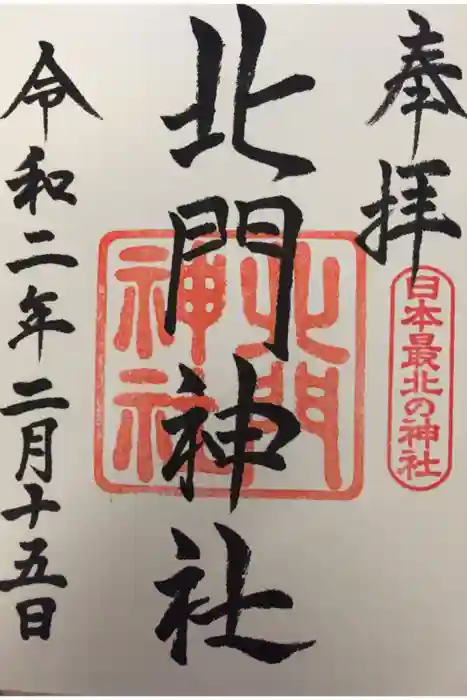 奉拝
日本最北の神社
北門神社
北門
神社
令和二年二月十五日